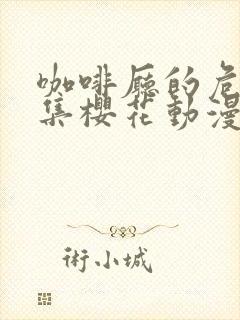 咖啡廳的危
集櫻花動漫
術小城